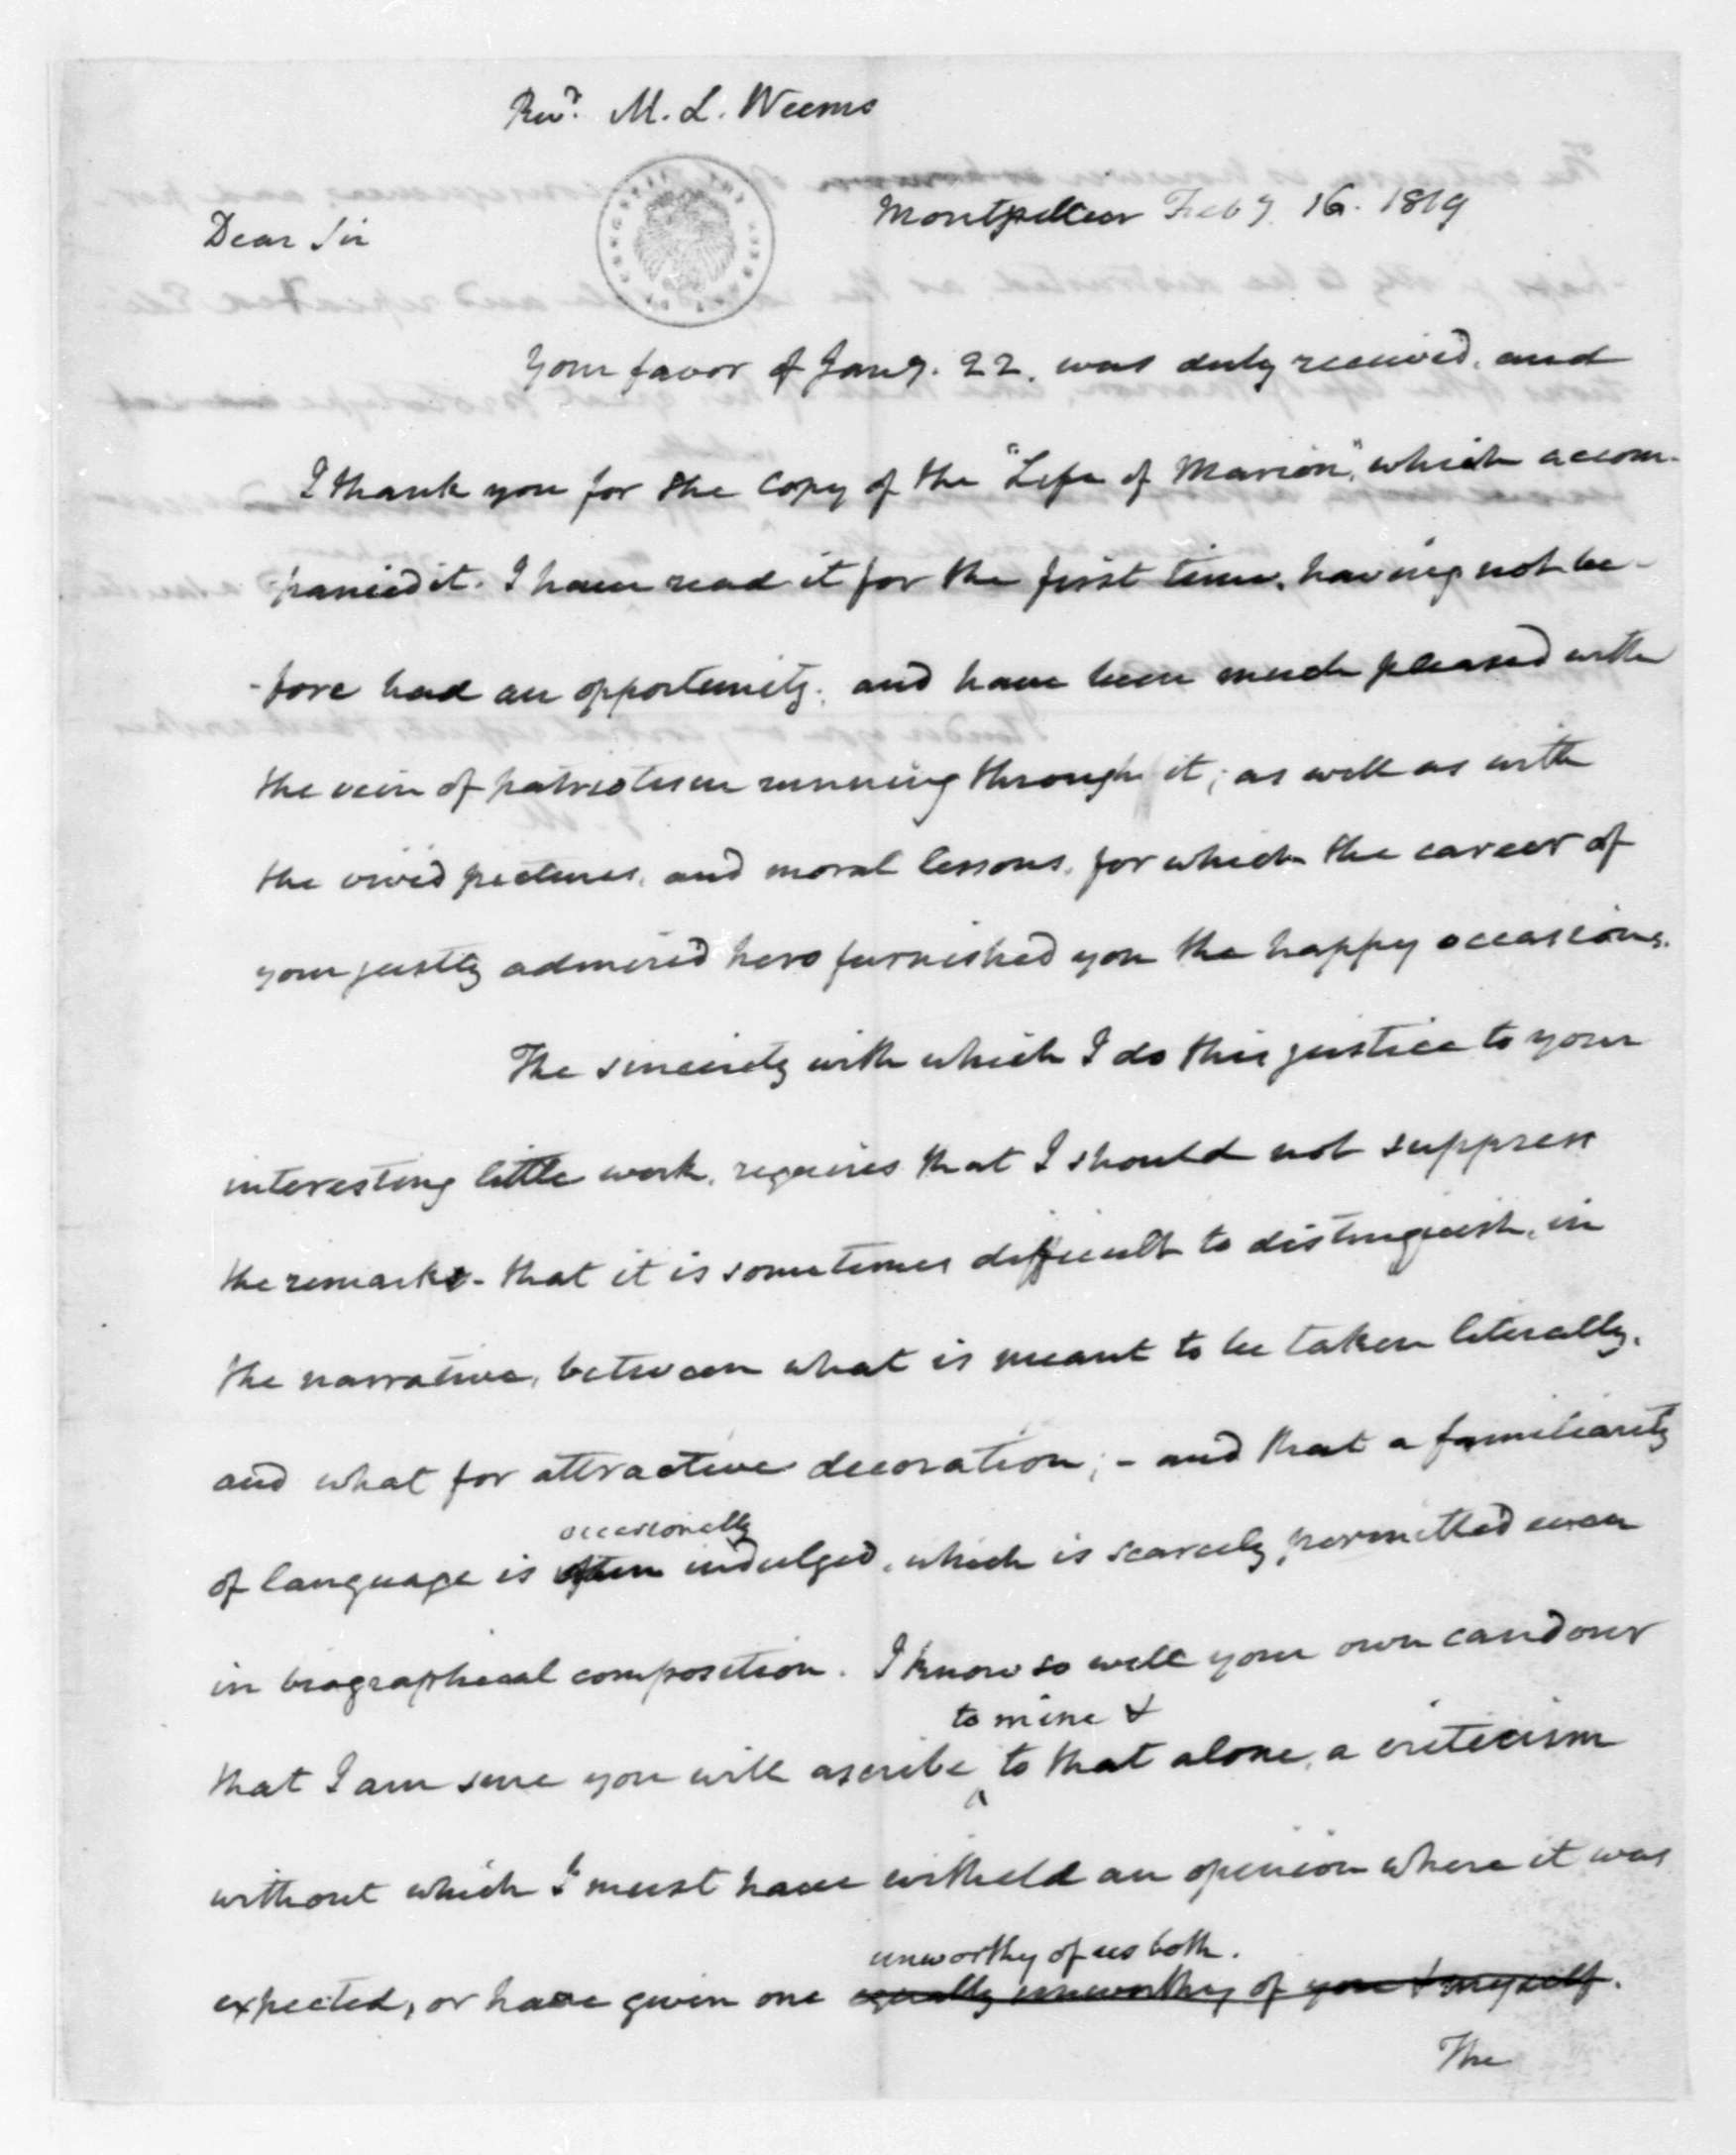 Revd. M. L. Weems
Montpellier Feby. 16. 1819
Dear Sir
Your favor of Jany. 22. was duly received, and
I thank you for the copy of the "Life of Marion", which accom-
-panied it. I have read it for the first time, having not be-
-fore had an opportunity; and have been much pleased with
the vein of patriotism running through it; as well as with
the vivid pictures, and moral lessons, for which the career of
your justly admired hero furnished you the happy occasions.
The sincerity with which I do this justice to your
interesting little work, requires that I should not suppress
the remarks- that it is sometimes difficult to distinguish, in
the narrative, between what is meant to be taken literally,
and what for attractive decoration; - and that a familiarity
occasionally
of language is often indulged, which is scarcely permitted even
in biographical composition. I know so well your own candour
to mine &
that I am sure you will ascribe to that alone, a criticism
without which I must have witheld an opinion where it was
unworthy of us both.
expected, or have given one equally unworthy of you & myself.
The